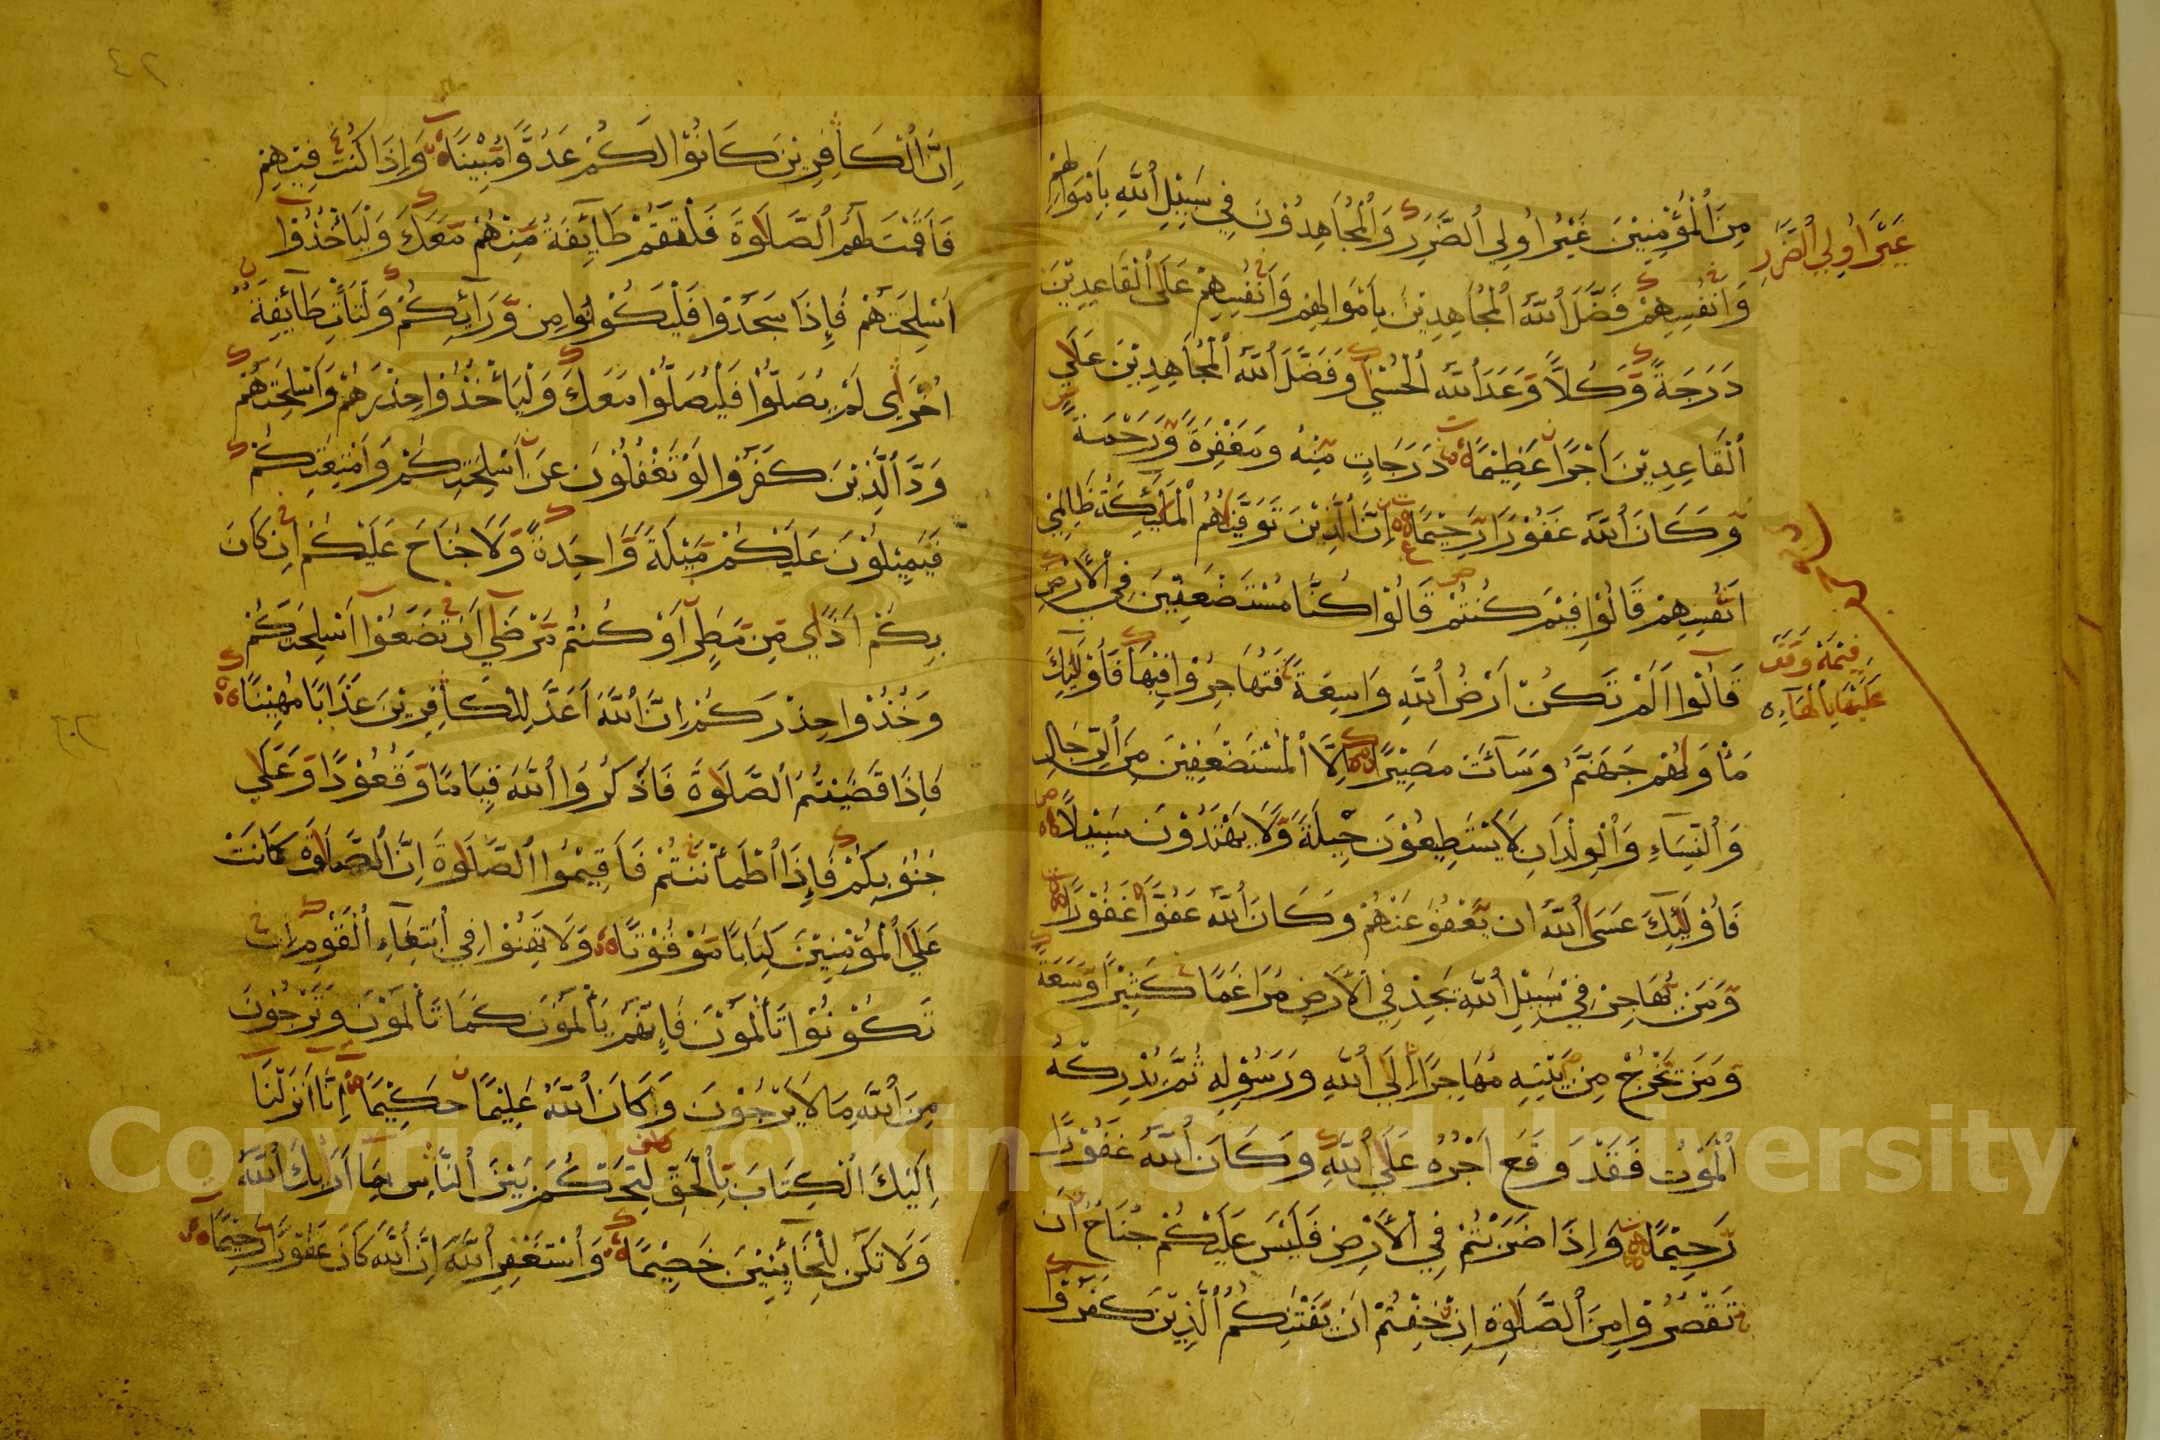 مِنَ ٱلْمُؤْمِنِيْنَ غَيْرُ اُولِي ٱلضَّرَرِ وَٱلْمُجَاهِدُوْنَ فِي سَبِيْلِ ٱللَّهِ بِاَمْوَالِهِمْ
غَيْرَ اُولِي ٱلضَّرَرِ
وَاَنْفُسِهِمْ فَضَّلَ ٱللَّهُ ٱلْمُجَاهِدِيْنَ بِاَمْوَالِهِمْ وَاَنْفُسِهِمْ عَلَى ٱلْقَاعِدِيْنَ
دَرَجَةً وَّكُلًّا وَّعَدَ ٱللَّهُ ٱلْحُسْنٰي وَفَضَّلَ ٱللَّهُ ٱلْمُجَاهِدِيْنَ عَلَي
ٱلْقَاعِدِيْنَ اَجْرًا عَظِيْمًا دَرَجَاتٍ مِّنْهُ وَمَغْفِرَةً وَّرَحْمَةً
وَّكَانَ ٱللَّهُ غَفُوْرًا رَّحِيْمًا اِنَّ ٱلَّذِيْنَ تَوَفّٰىهُمُ ٱلْمَلٰٓئِكَةُ ظَالِمِيْ
اَنْفُسِهِمْ قَالُوْا فِيْمَ كُنْتُمْ قَالُوْا كُنَّا مُسْتَضْعَفِيْنَ فِي ٱلْاَرْضِ
قَالُوْا اَلَمْ تَكُنْ اَرْضُ ٱللَّهِ وَاسِعَةً فَتُهَاجِرُوْا فِيْهَا فَاُوْلٰٓئِكَ
فِيْمَهْ وَقَفَ
عَلَيْهَا بِٱلْهَآءِ
مَاْوٰىهُمْ جَهَنَّمُ وَسَآءَتْ مَصِيْرًا اِلَّا ٱلْمُسْتَضْعَفِيْنَ مِنَ ٱلرِّجَالِ
وَٱلنِّسَآءِ وَٱلْوِلْدَانِ لَا يَسْتَطِيْعُوْنَ حِيْلَةً وَّلَا يَهْتَدُوْنَ سَبِيْلًا
فَاُوْلٰٓئِكَ عَسَى ٱللَّهُ اَنْ يَّعْفُوَ عَنْهُمْ وَكَانَ ٱللَّهُ عَفُوًّا غَفُوْرًا
وَّمَنْ يُّهَاجِرْ فِيْ سَبِيْلِ ٱللَّهِ يَجِدْ فِي ٱلْاَرْضِ مُرَاغَمًا كَثِيْرًا وَّسَعَةً
وَّمَنْ يَّخْرُجْ مِنْ بَيْتِهِ مُهَاجِرًا اِلَي ٱللَّهِ وَرَسُوْلِهِ ثُمَّ يُدْرِكْهُ
ٱلْمَوْتُ فَقَدْ وَقَعَ اَجْرُهُ عَلَي ٱللَّهِ وَكَانَ ٱللَّهُ غَفُوْرًا
رَّحِيْمًا وَاِذَا ضَرَبْتُمْ فِي ٱلْاَرْضِ فَلَيْسَ عَلَيْكُمْ جُنَاحٌ اَنْ
تَقْصُرُوْا مِنَ ٱلصَّلٰوةِ اِنْ خِفْتُمْ اَنْ يَّفْتِنَكُمُ ٱلَّذِيْنَ كَفَرُوْا
اِنَّ ٱلْكَافِرِيْنَ كَانُوْا لَكُمْ عَدُوًّا مُّبِيْنًا وَاِذَا كُنْتَ فِيْهِمْ
فَاَقَمْتَ لَهُمُ ٱلصَّلٰوةَ فَلْتَقُمْ طَآئِفَةٌ مِّنْهُمْ مَّعَكَ وَلْيَاْخُذُوْا
اَسْلِحَتَهُمْ فَاِذَا سَجَدُوْا فَلْيَكُوْنُوْا مِنْ وَّرَآئِكُمْ وَلْتَاْتِ طَآئِفَةٌ
اُخْرٰي لَمْ يُصَلُّوْا فَلْيُصَلُّوْا مَعَكَ وَلْيَاْخُذُوْا حِذْرَهُمْ وَاَسْلِحَتَهُمْ
وَدَّ ٱلَّذِيْنَ كَفَرُوْا لَوْ تَغْفُلُوْنَ عَنْ اَسْلِحَتِكُمْ وَاَمْتِعَتِكُمْ
فَيَمِيْلُوْنَ عَلَيْكُمْ مَّيْلَةً وَّاحِدَةً وَّلَا جُنَاحَ عَلَيْكُمْ اِنْ كَانَ
بِكُمْ اَذًي مِّنْ مَّطَرٍ اَوْ كُنْتُمْ مَّرْضٰي اَنْ تَضَعُوْا اَسْلِحَتَكُمْ
وَخُذُوْا حِذْرَكُمْ اِنَّ ٱللَّهَ اَعَدَّ لِلْكَافِرِيْنَ عَذَابًا مُّهِيْنًا
فَاِذَا قَضَيْتُمُ ٱلصَّلٰوةَ فَاذْكُرُوا ٱللَّهَ قِيَامًا وَّقُعُوْدًا وَّعَلٰي
جُنُوْبِكُمْ فَاِذَا ٱطْمَاْنَنْتُمْ فَاَقِيْمُوا ٱلصَّلٰوةَ اِنَّ ٱلصَّلٰوةَ كَانَتْ
عَلَي ٱلْمُؤْمِنِيْنَ كِتَابًا مَّوْقُوْتًا وَلَا تَهِنُوْا فِي ٱبْتِغَآءِ ٱلْقَوْمِ اِنْ
تَكُوْنُوْا تَاْلَمُوْنَ فَاِنَّهُمْ يَاْلَمُوْنَ كَمَا تَاْلَمُوْنَ وَتَرْجُوْنَ
مِنَ ٱللَّهِ مَا لَا يَرْجُوْنَ وَكَانَ ٱللَّهُ عَلِيْمًا حَكِيْمًا اِنَّا اَنْزَلْنَا
اِلَيْكَ ٱلْكِتَابَ بِٱلْحَقِّ لِتَحْكُمَ بَيْنَ ٱلنَّاسِ بِمَا اَرٰىكَ ٱللَّهُ
وَلَا تَكُنْ لِّلْخَآئِنِيْنَ خَصِيْمًا وَٱسْتَغْفِرِ ٱللَّهَ اِنَّ ٱللَّهَ كَانَ غَفُوْرًا رَّحِيْمًا
Copyright © King Saud University